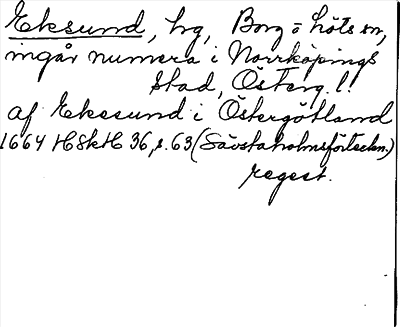 Eksund, hg, Borg o Löts sn,
ingår numera i Norrköpings
stad, Österg. l.
af Ekesund i Östergötland
1664 HSkH 36, s. 63 (Säfstaholmsförteckn.)
regest.